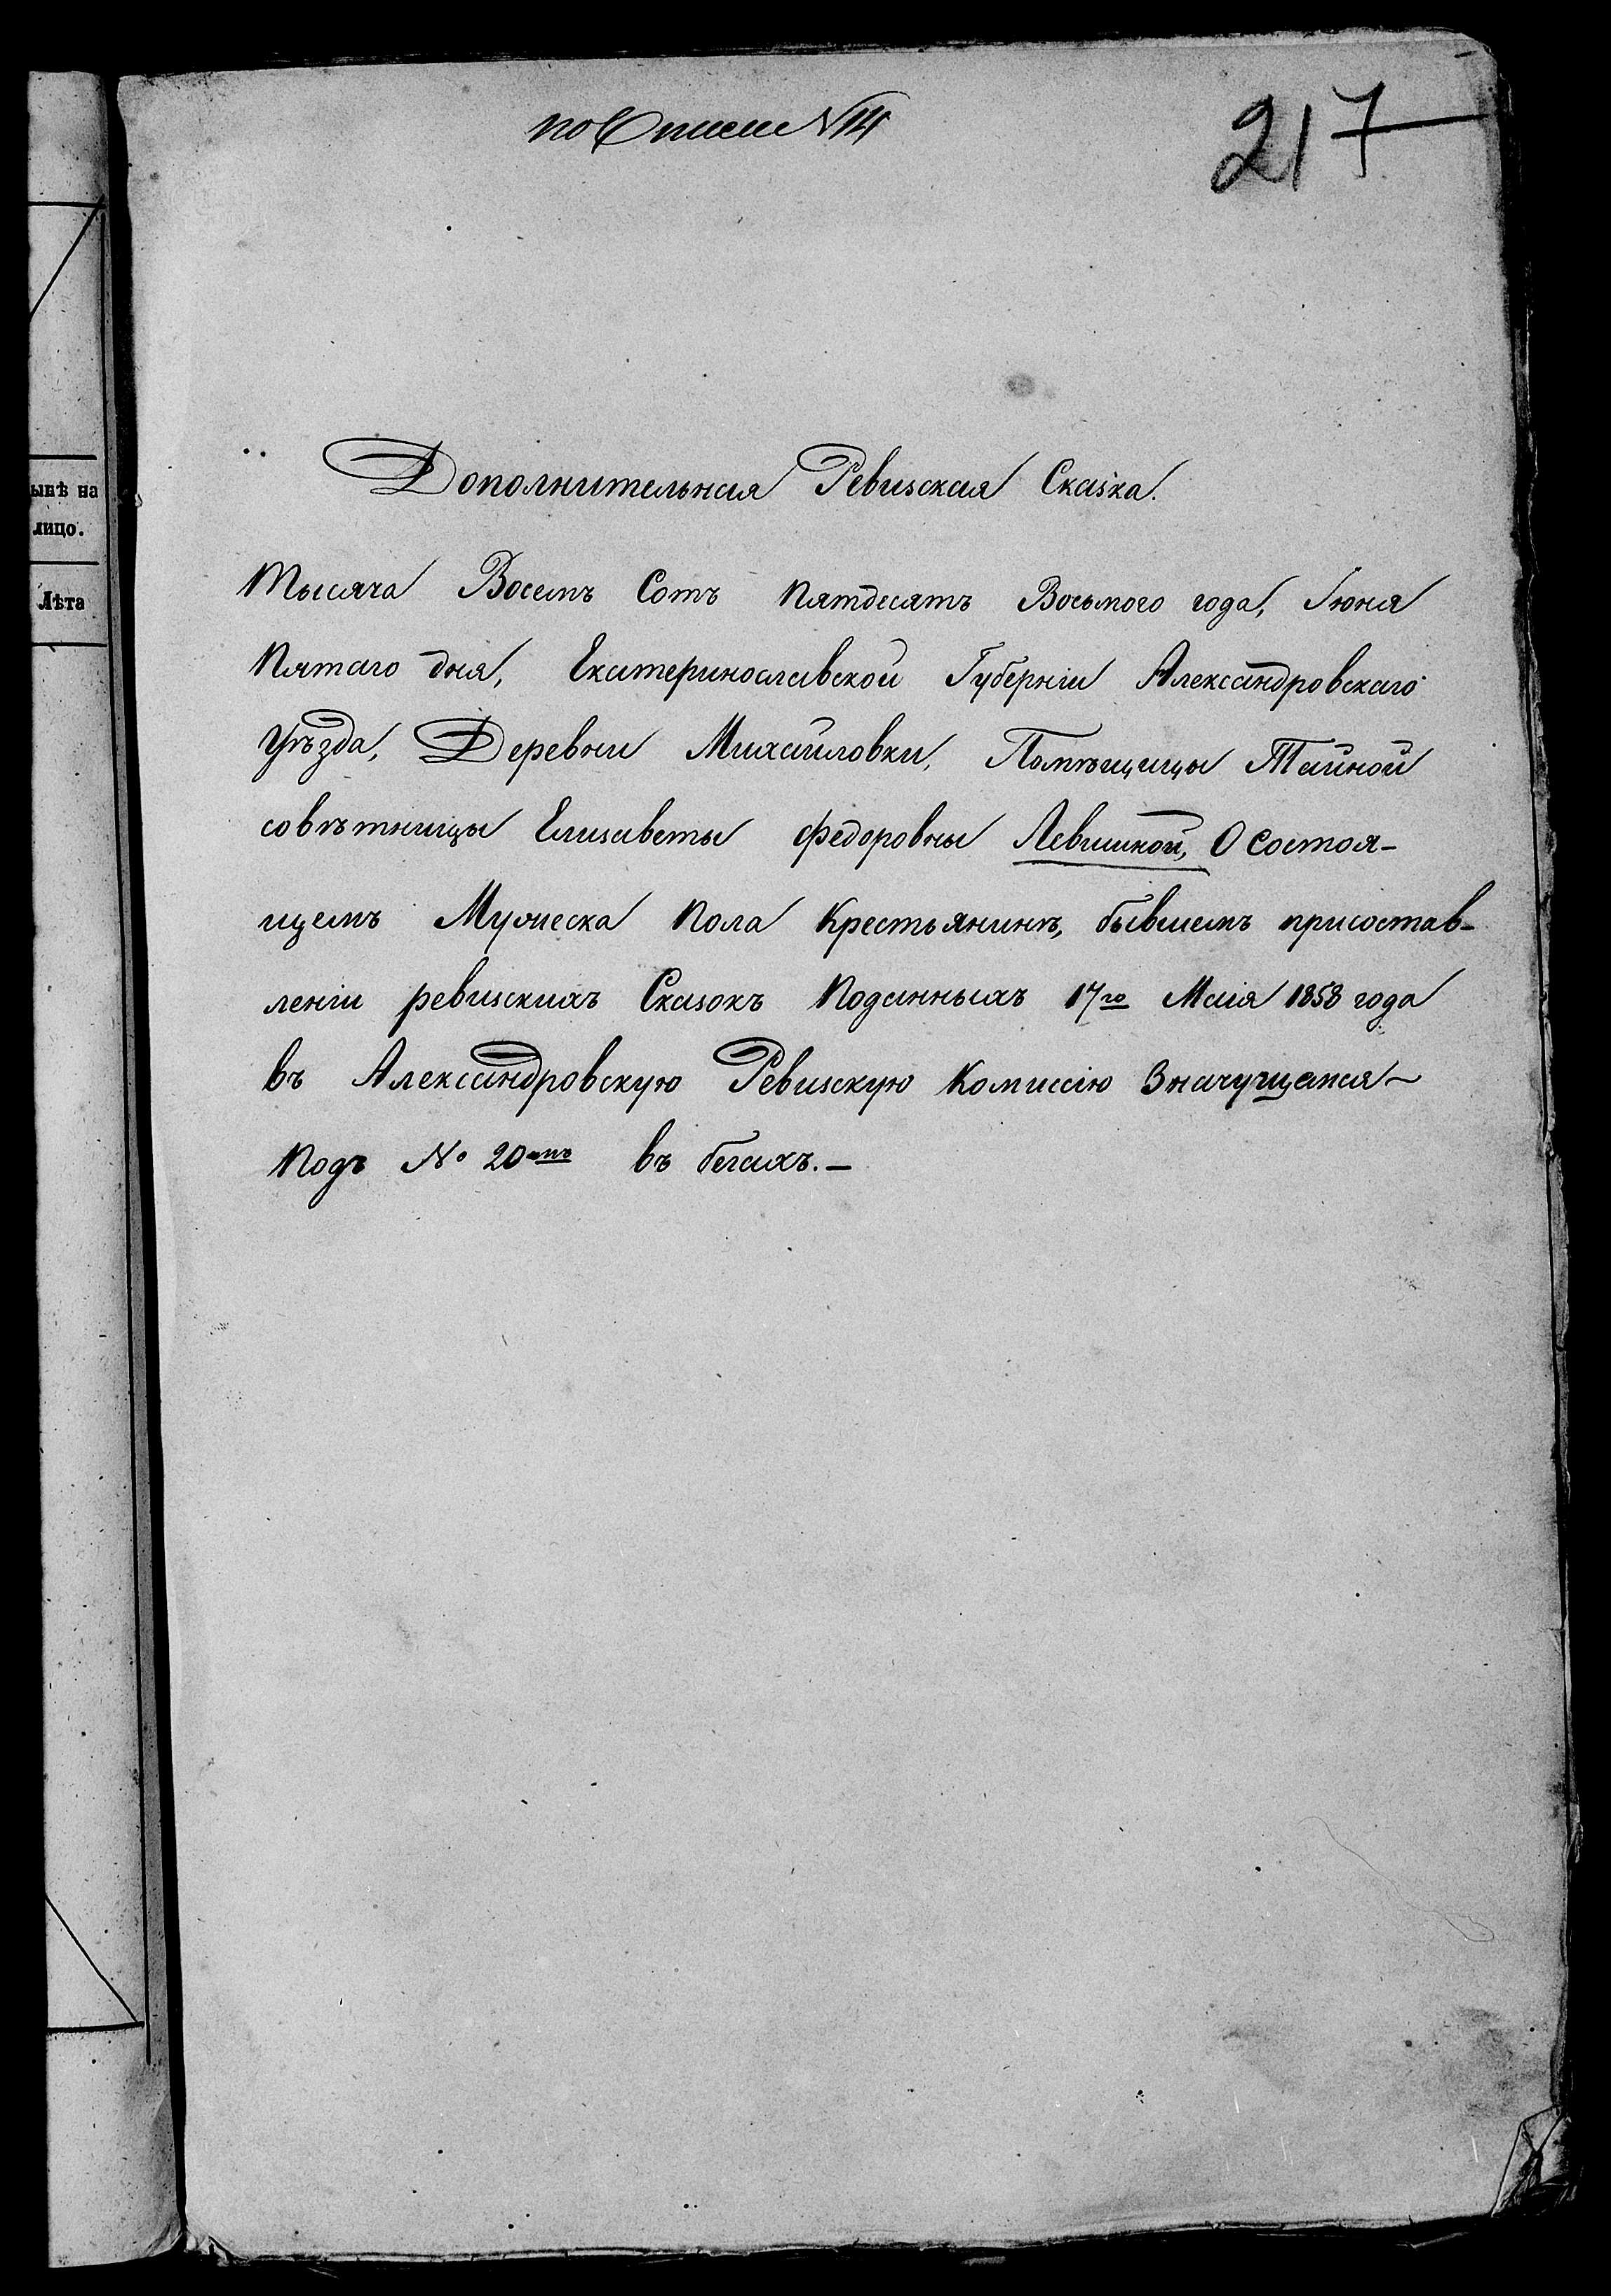 по Описи №14
217
ынѣ на
лицо.
Лѣта
Дополнительная Ревизская Сказка.
Тысяча Восемъ Сотъ Пятдесятъ Восьмого года, Іюня
Пятаго дня, Екатеринославской Губерніи Александровскаго
Уѣзда, Деревни Михайловки, Помѣщицы Тайной
совѣтницы Елизаветы Федоровны Левшиной, О состоя-
щемъ Мужеска Пола Крестьянинѣ, бывшемъ присостав-
леніи ревизскихъ Сказокъ Поданныхъ 17го Маія 1858 года
въ Александровскую Ревизскую Комиссію Значущемся
Подъ № 20мъ въ бегахъ.